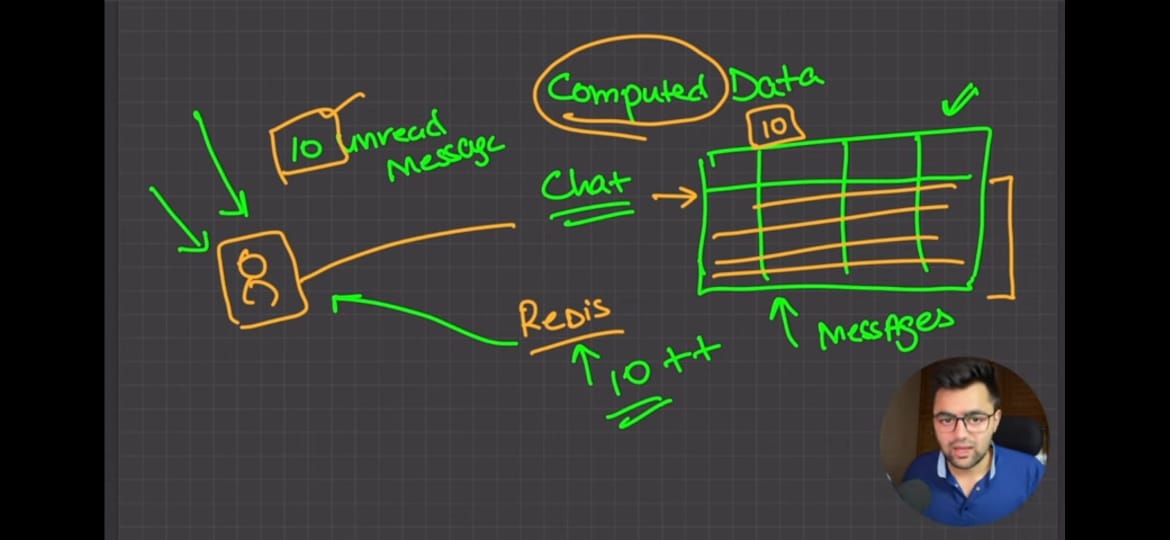 Computed Data
10 unread
Message
10
Chat
Redis
Messages
10++